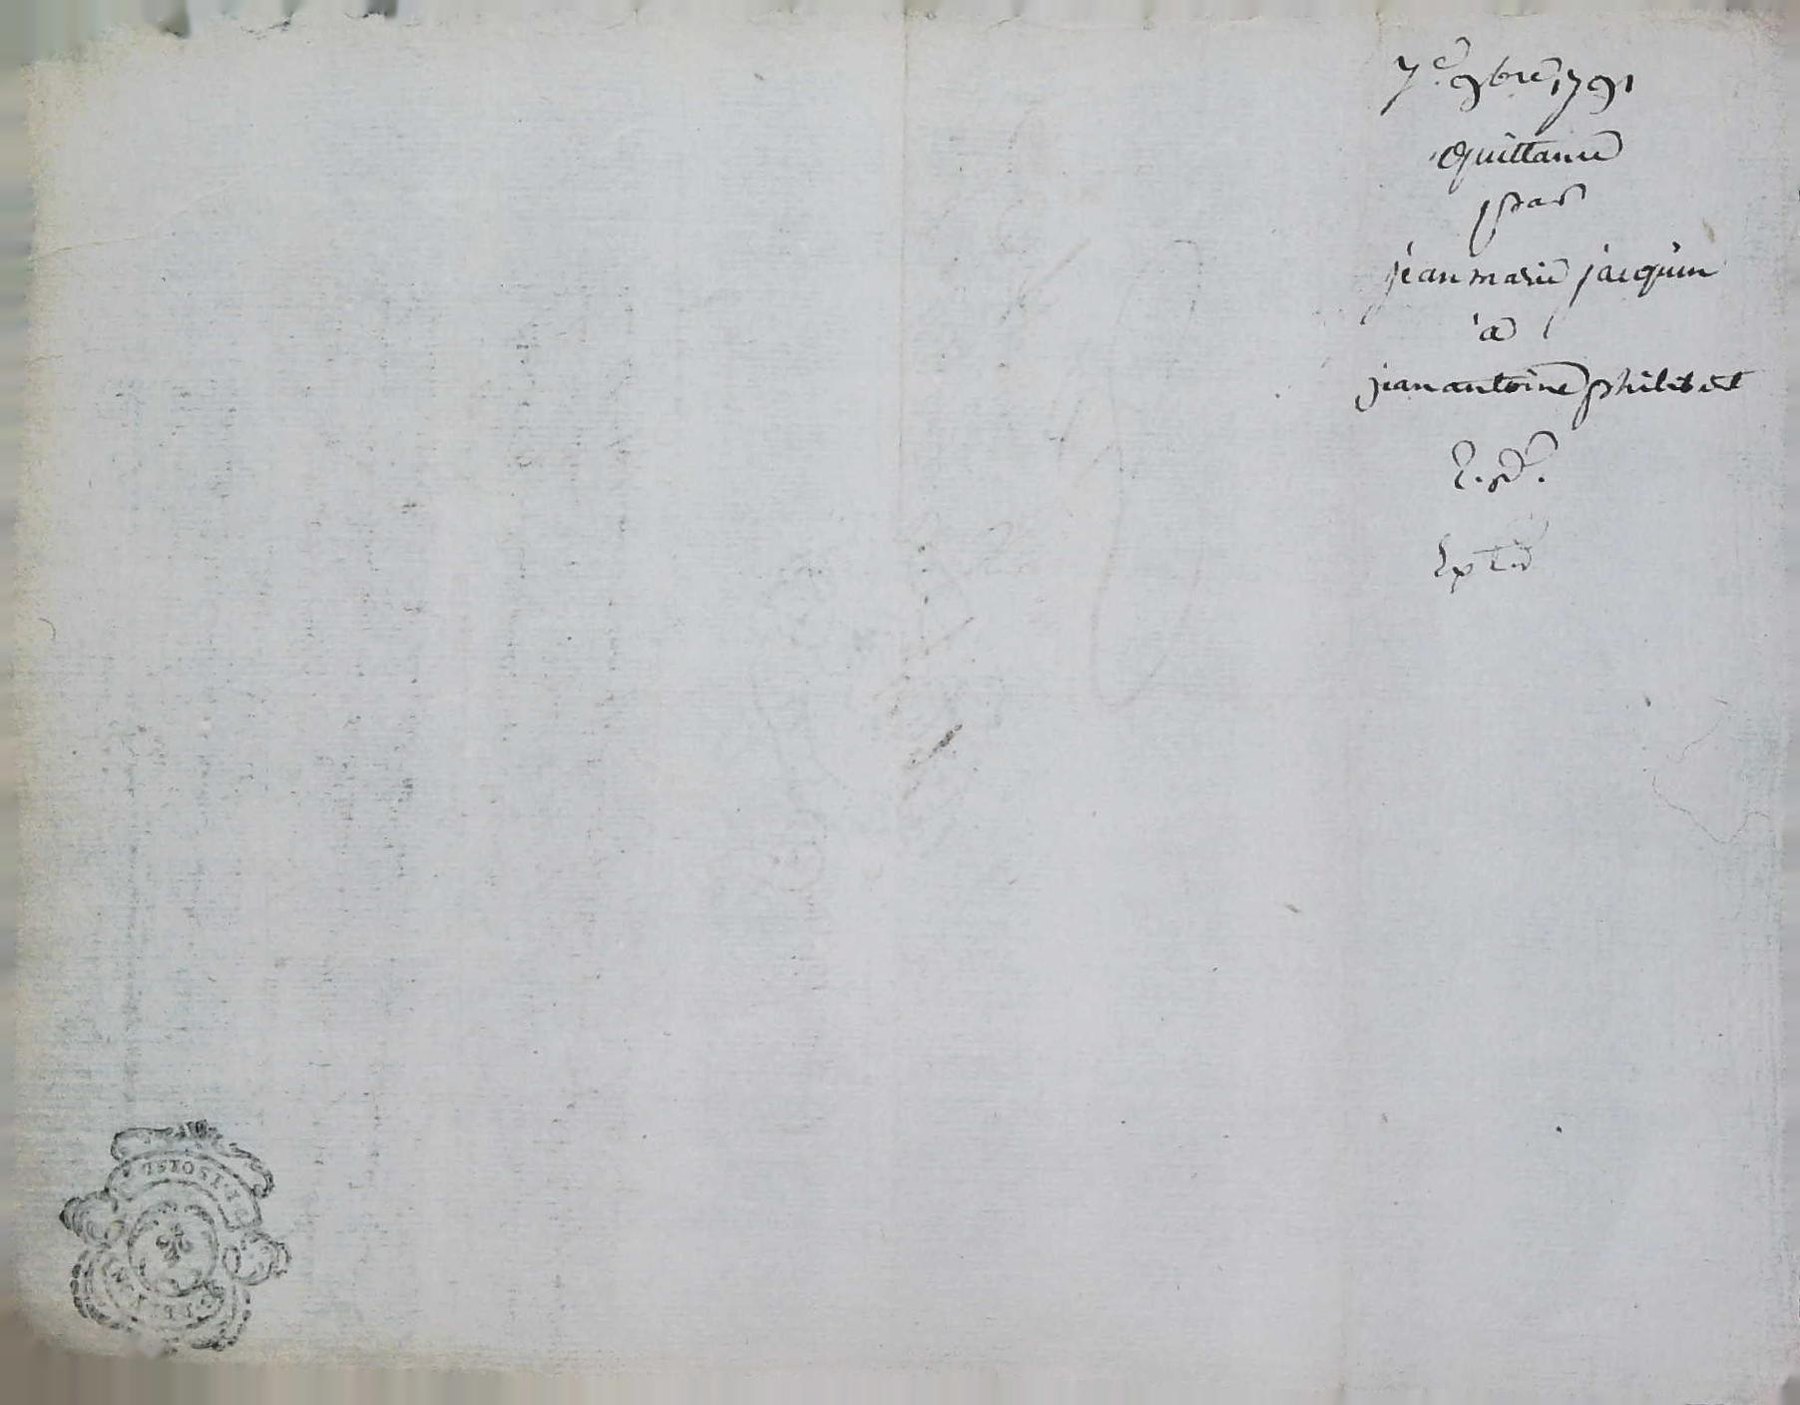 7e. 9bre 1791
quittance
par
jean marie jacquin
a
jean antoine philibert